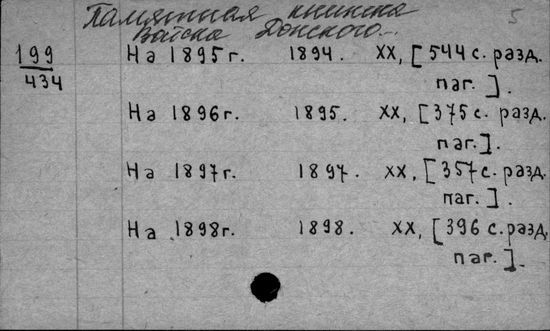 Памятная книжка 5
Войска Донского...
199
434
На 1895 г. 1894. XX, [544 с. разд.
паг.].
На 1896 г. 1895. XX, [375 с. разд.
паг.].
На 1897 г. 1897. XX, [357 с. разд.
паг.].
На 1898 г. 1898. XX, [396 с. разд.
паг.].